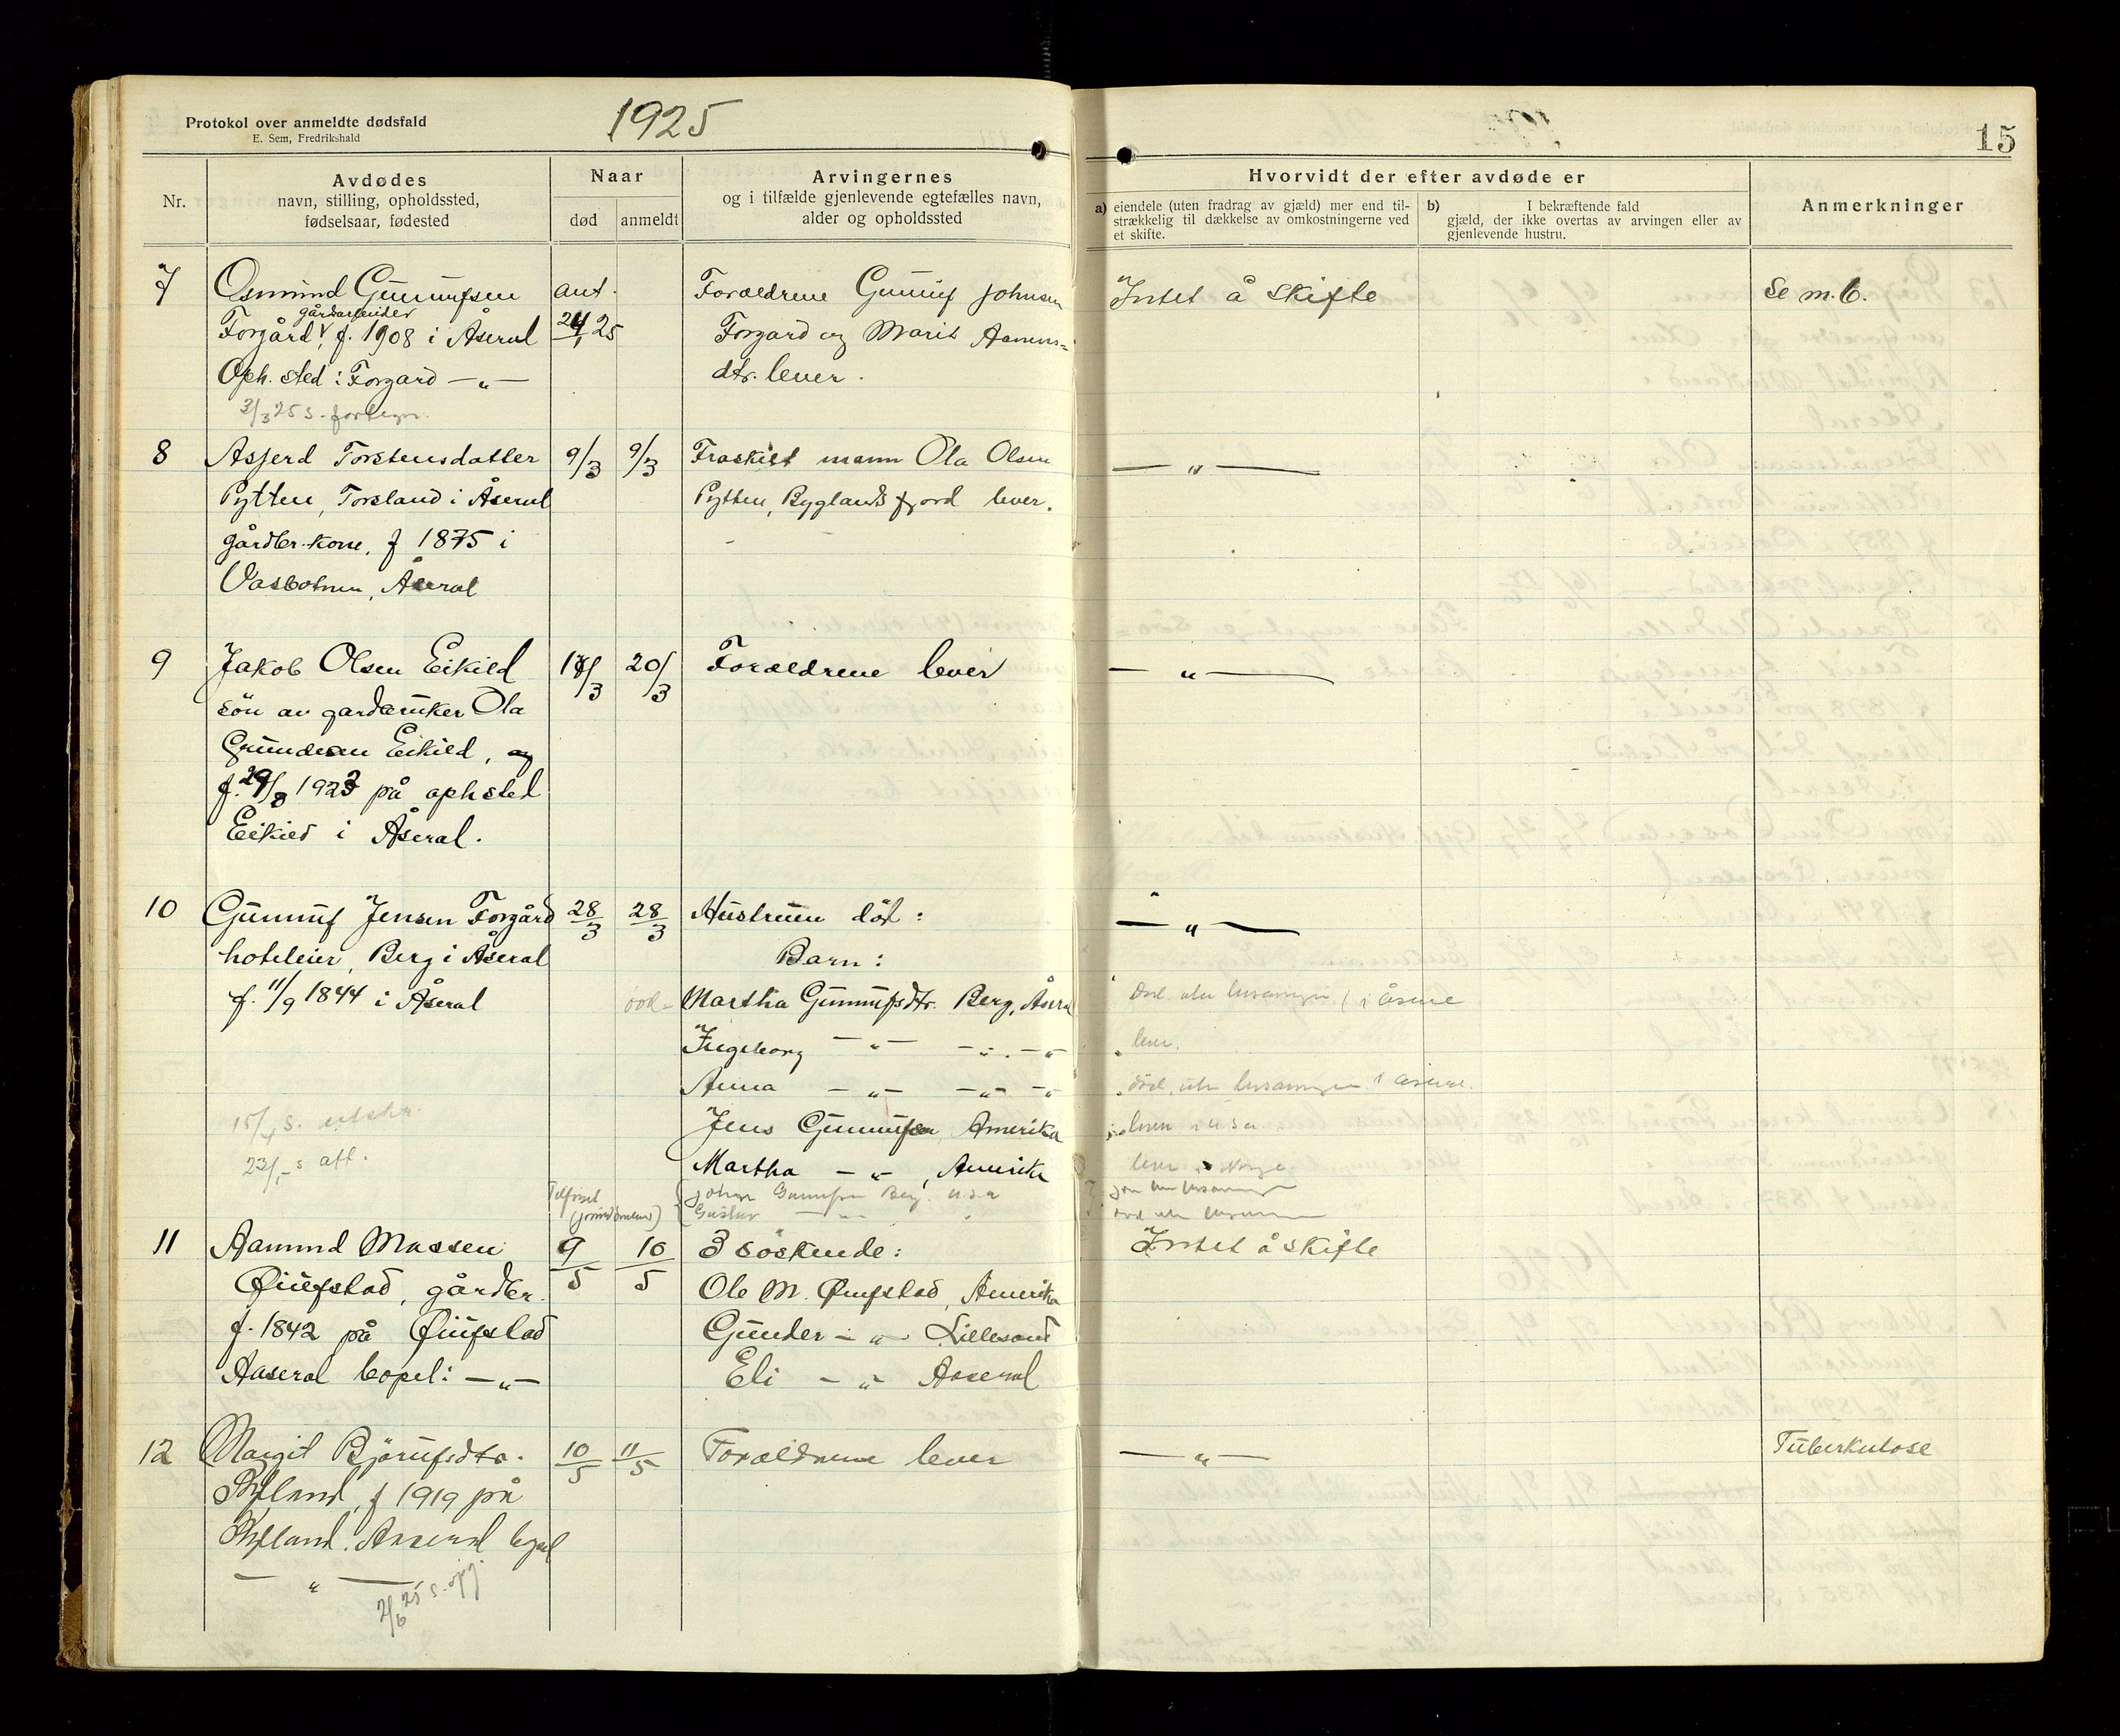 Protokol over anmeldte dødsfald
E. Sem, Fredrikshald
1925
15
Nr.
Avdødes
navn, stilling, opholdssted,
fødselsaar, fødested
Naar
død
anmeldt
Arvingernes
og i tilfælde gjenlevende egtefælles navn,
alder og opholdssted
Hvorvidt der efter avdøde er
a) eiendele (uten fradrag av gjæld) mer end til-
strækkelig til dækkelse av omkostningerne ved
et skifte.
b) I bekræftende fald
gjæld, der ikke overtas av arvingen eller av
gjenlevende hustru.
Anmerkninger
7 Osmund Gunnufsen ant. Forældrene Gunnuf Johnsen Intet å skifte Se m.b.
gårdarbeider
Forgård, f. 1908 i Åseral 24/1 25 Forgard og Marit Aamun=
Oph. sted: Forgard —„— dtr. lever.
3/3 25 s.
8 Asjerd Torstensdatter 9/3 9/3 Fraskilt mann Ola Olsen —„—
Pytten, Torsland i Åseral Pytten, Byglandsfjord lever.
gårdbr. kone, f 1875 i
Vasbotnen, Åseral
9 Jakob Olsen Eikild 18/3 20/3 Forældrene lever —„—
sön av gardbruker Ola
Gundersen Eikild,
f. 29/8 1923 på ophsted
Eikild i Åseral.
10 Gunnuf Jensen Forgård 28/3 28/3 Hustruen död: —„—
hoteleier, Berg i Åseral Barn:
f. 11/9 1844 i Åseral död- Martha Gunnufsdtr. Berg, Åseral Död uten livsarvinger i Åseral
Ingeborg —„— —„— —„ lever.
Anna —„— —„— —„ död uten livsarvinger i Åseral.
15/4 s. utskr. Jens Gunnufsen Amerika lever i USA
23/ s att. Martha —„—, Amerika lever i Norge
Tilföiet Johan Gunnufsen Berg. U.S.A uten livsarvinger
Gustav —„— död uten livsarvinger
11 Aamund Massen 9/5 10/5 3 söskende: Intet å skifte
Øiufstad, gårdbr. Ole M. Øiufstad, Amerika
f. 1842 på Øiufstad Gunder —„— Lillesand
Aaseral bopel: —„— Eli —„— Aaseral
12 Margit Björnufsdtr. 10/5 11/5 Forældrene lever —„— Tüberkulose
Kyland, f 1919 på
Kylland. Aaseral bopel
—„—
2/6 25 s.